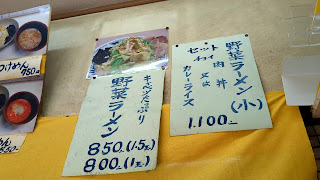 つけめん
750円
キャベツたっぷり
野菜ラーメン
850.(1.5玉)
800.(1玉)
野菜ラーメン(小)
セット
チョイ肉丼
又は
カレーライス
1.100.-